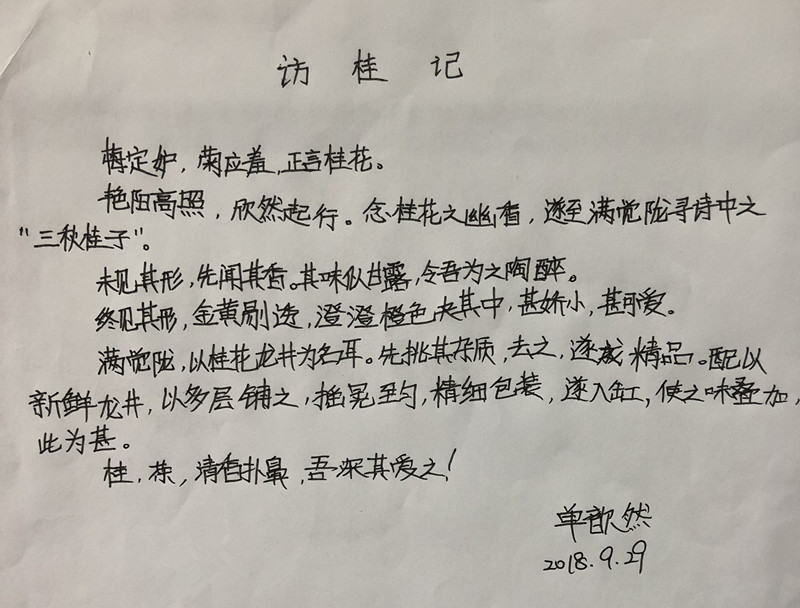 访桂记
梅定妒，菊应羞，正言桂花。
艳阳高照，欣然起行。念桂花之幽香，遂至满觉陇寻诗中之
“三秋桂子”。
未见其形，先闻其香。其味似甘露，令吾为之陶醉。
终见其形，金黄剔透，澄澄橙色夹其中，甚娇小，甚可爱。
满觉陇，以桂花龙井为名耳。先挑其杂质，去之，遂成精品。配以
新鲜龙井，以多层铺之，摇晃至匀，精细包装，遂入缸，使之味叠加，
此为甚。
桂，茶，清香扑鼻，吾深其爱之！
单歆然
2018.9.29